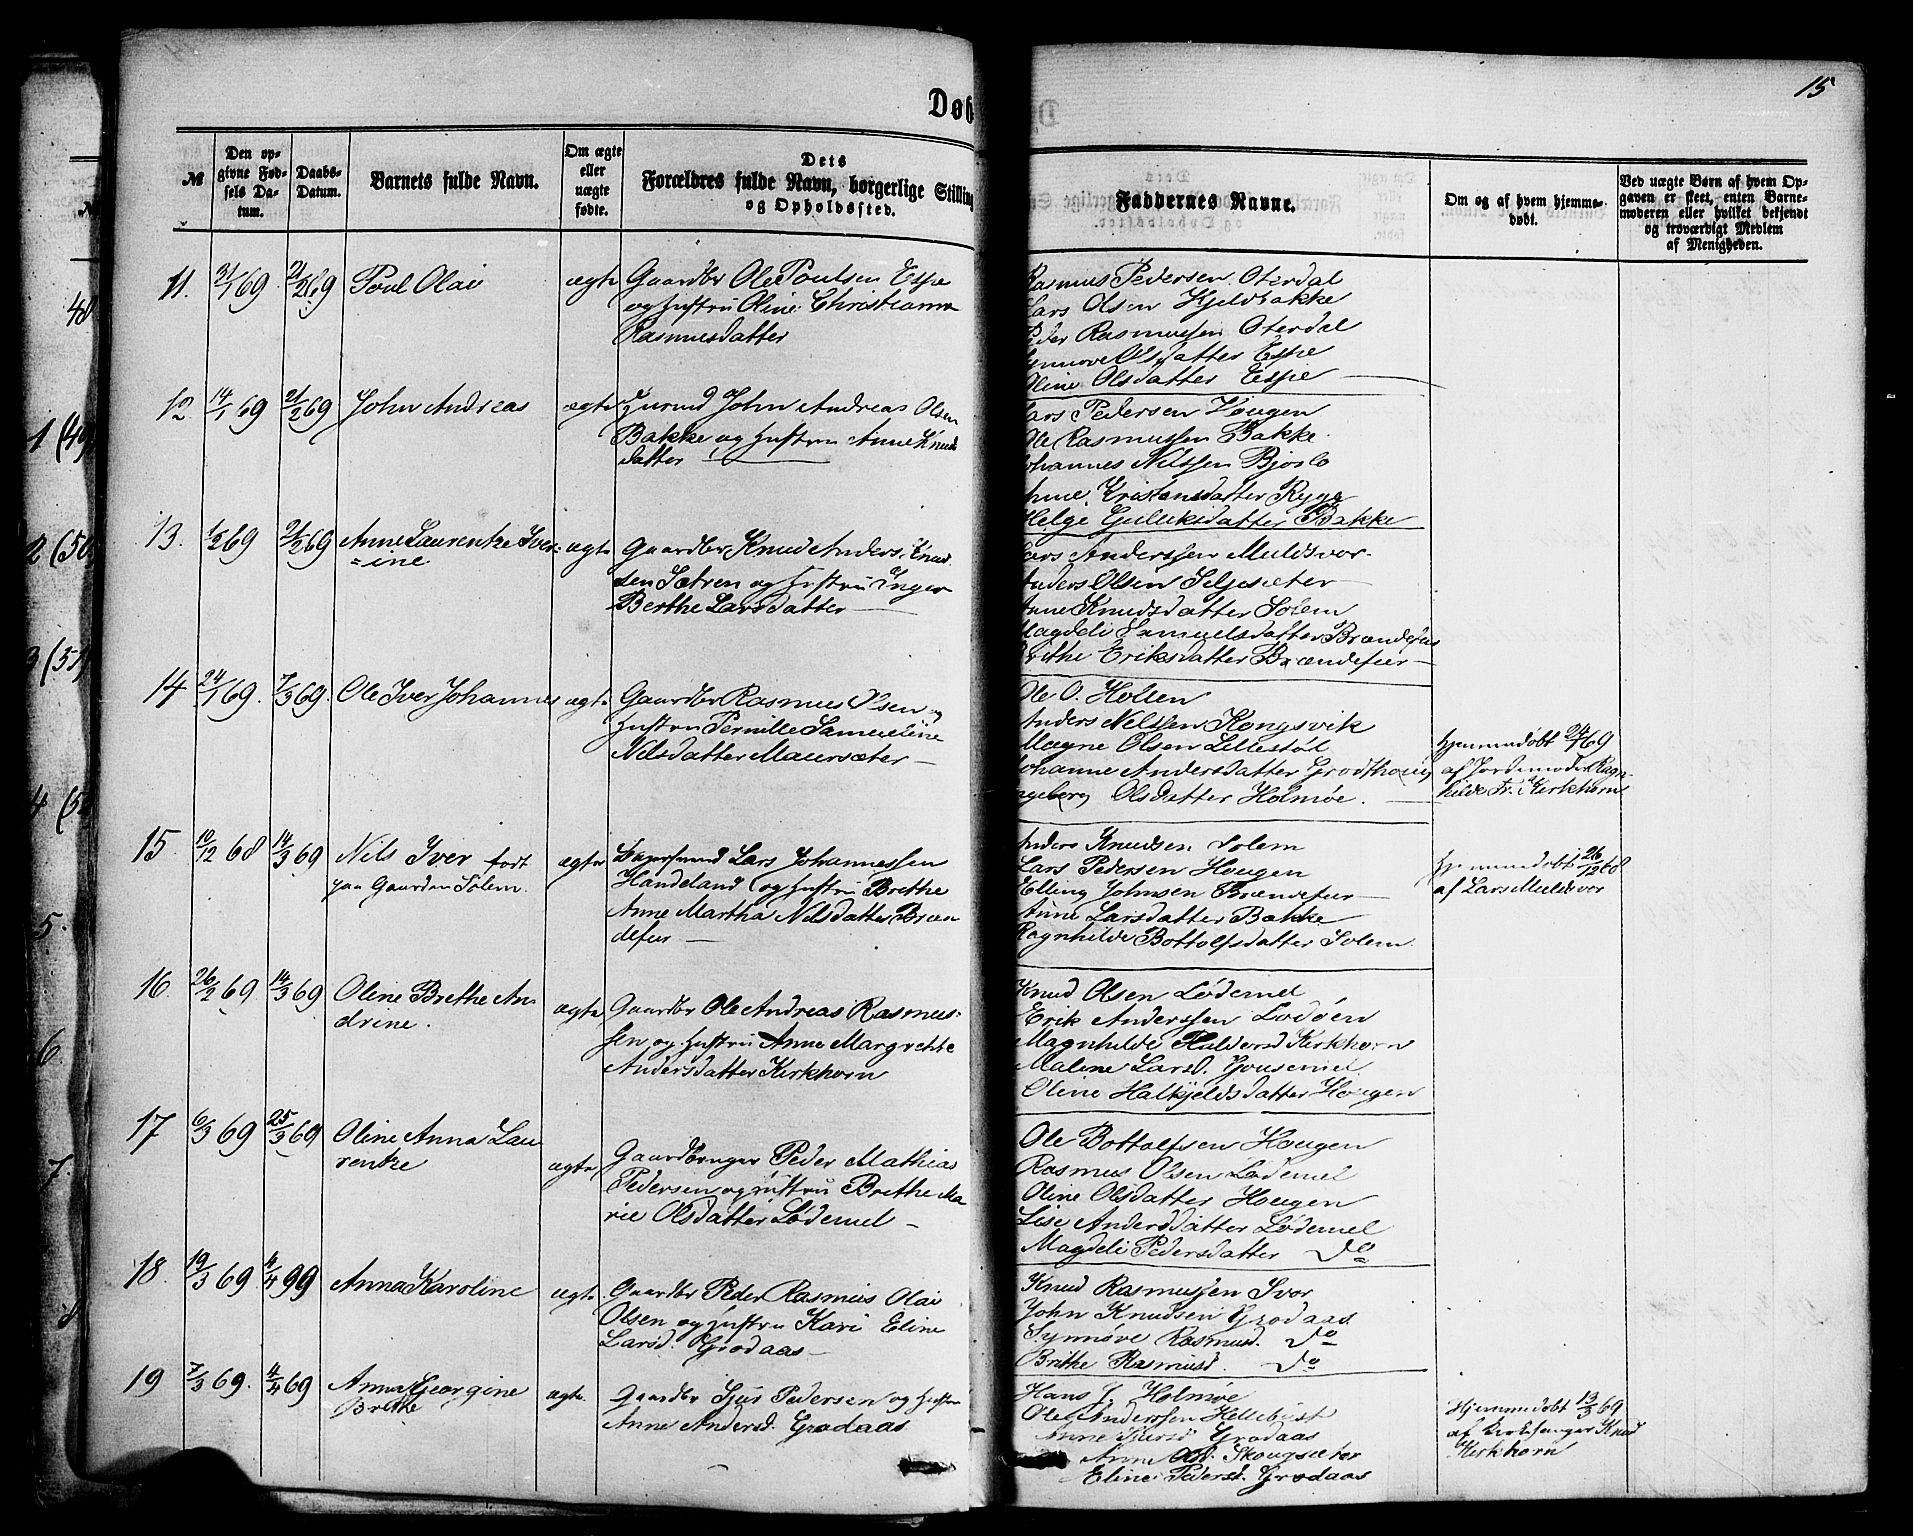 15
Døb
№
Den op-
givne Fød-
sels Da-
tum.
Daabs-
Datum.
Barnets fulde Navn.
Om ægte
eller
uægte
fødte.
Dets
Forældres fulde Navn, borgerlige Stilling
og Opholdssted.
Faddernes Navne.
Om og af hvem hjemme-
døbt.
Ved uægte Børn af hvem Op-
gaven er skeet, enten Barne-
moderen eller hvilket bekjendt
og troværdigt Medlem
af Menigheden.
11. 31/1 69 21/2 69 Poul Olai ægte Gaardbr Ole Poulsen Espe
og Hustru Oline Christianna
Rasmusdatter
Rasmus Pedersen Oterdal
Lars Olsen Kjeldbakke
Peder Rasmussen Oterdal
Synnøve Olsdatter Espe
Oline Olsdatter Espe
12 14/1 69 21/2 69 John Andreas ægte John Andreas Olsen
Bakke og Hustru Anne Knuds
datter
Lars Pedersen Hougen
Ole Rasmussen Bakke
Johannes Nilssen Bjørlo
Kristensdatter Rygg
Helge Gulliksdatter Bakke
13. 1/2 69 21/2 69 Anne Laurentze Iver=
=ine ægte Gaardbr Knud Anders Knud
sen Sætren og Hustru Inger
Berthe Larsdatter
Lars Anderssen Muldsvor
Anders Olsen Seljesæter
Anne Knudsdatter Solem
Magdeli Samuelsdatter Brændefur
Brithe Eriksdatter Brændefur
14 24/1 69. 7/3 69. Ole Iver Johannes ægte Gaardbr Rasmus Olsen og
Hustru Pernille Samueline
Nilsdatter Maursæter
Ole O. Hollen
Anders Nilssen Kongsvik
Magne Olsen Lillestøl
Johanne Andersdatter Grodthoug
Ingeborg Olsdatter Holmøe.
Hjemmedøbt 24/1 69
af Jordemoder Ragn-
hilde Fr. Kirkhorn
15 10/12 68 14/3 69 Nils Iver født
paa Gaarden Solem. ægte Lars Johannessen
Handeland og Hustru Brethe
Anne Martha Nilsdatter Bræn
defur
Anders Knudsen Solem
Lars Pedersen Hougen
Elling Johnsen Brændefur
Anne Larsdatter Bakke
Ragnhilde Bottolfsdatter Solem.
Hjemmedøbt 26/12 68
af Lars Muldsvor
16. 26/2 69 14/3 69 Oline Brethe An
drine. ægte Gaardbr Ole Andreas Rasmus-
sen og Hustru Anne Margrethe
Andersdatter Kirkhorn
Knud Olsen Lødemel
Erik Anderssen Lødøen
Magnhilde Kirkhorn
Maline Larsd. Housemel
Oline Halkjeldsdatter Hougen
17 6/3 69 25/3 69 Oline Anna Lau
rentze ægte Gaardbruger Peder Mathias
Pedersen og Hustru Brethe Ma
rie Olsdatter Lødemel
Ole Bottolfsen Hougen
Rasmus Olsen Lødemel
Oline Olsdatter Hougen
Lise Andersdatter Lødemel
Magdeli Pedersdatter do
18. 19/3 69 4/4 99 Anna Karoline ægte. Gaardbr Peder Rasmus Olai
Olsen og Hustru Kari Eline
Larsd. Grodaas
Knud Rasmussen Svor
John Knudsen Grodaas
Synnøve Rasmusd. do
Brithe Rasmusd. do
19 7/3 69. 4/4 69 Anna Georgine
Brethe ægte. Gaardbr Sjur Pedersen og Hustru
Anne Andersd. Grodaas
Hans J. Holmøe
Ole Anderssen Hellebust
Anne Sjursd Grodaas
Anne Skougsæter
Eline Pedersd. Grodaas
Hjemmedøbt 13/3 69
af Kirkesanger Knud
Kirkhorn